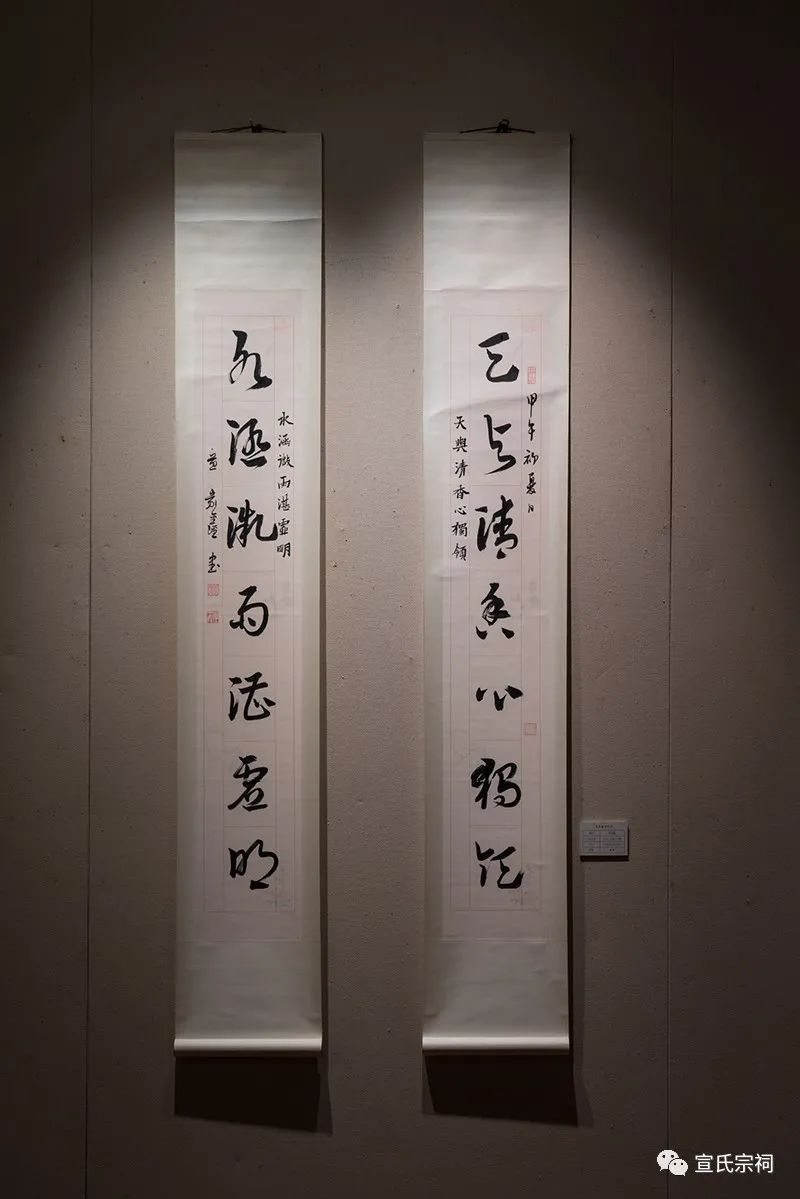 甲午初夏日
天與清香心獨領
天与清香心獨領
水涵微雨湛虚明
水涵微雨湛虛明
書
宣氏宗祠